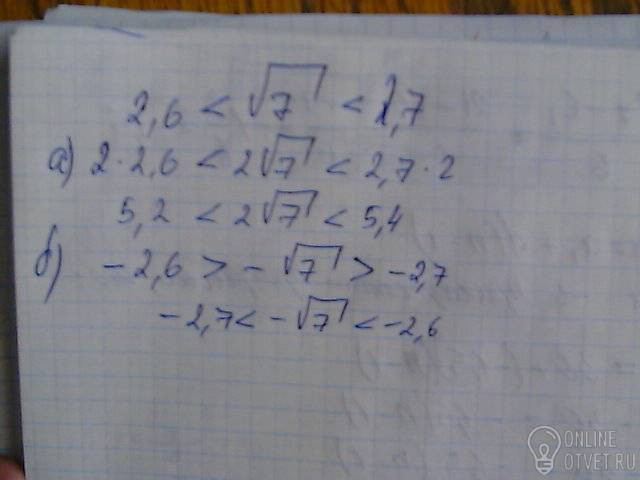 2,6 < √7 < 2,7
а) 2·2,6 < 2√7 < 2,7·2
5,2 < 2√7 < 5,4
б) -2,6 > -√7 > -2,7
-2,7 < -√7 < -2,6
ONLINE
OTVET.RU